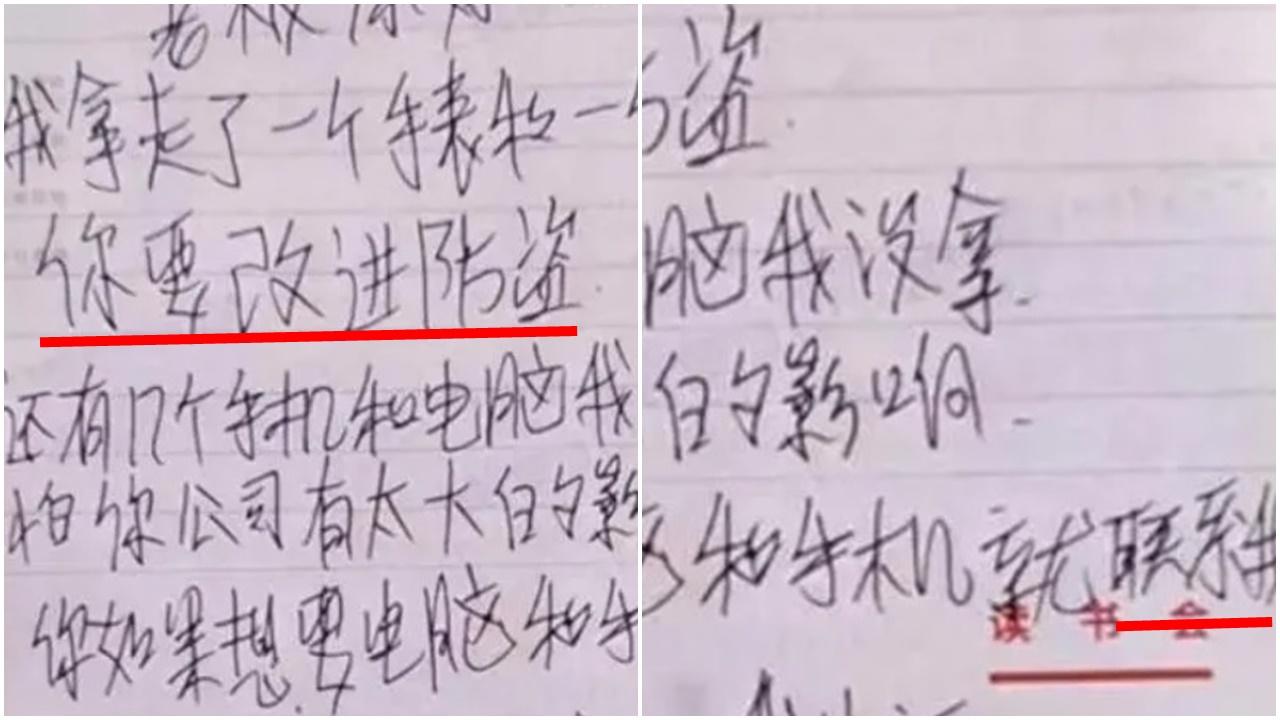 老板你好
我拿走了一个手表和一
你要改进防盗.
还有几个手机和电脑我
怕你公司有太大的影
你如果想要电脑和手
盗.
脑我没拿.
的影响.
和手机就联系我
读书会